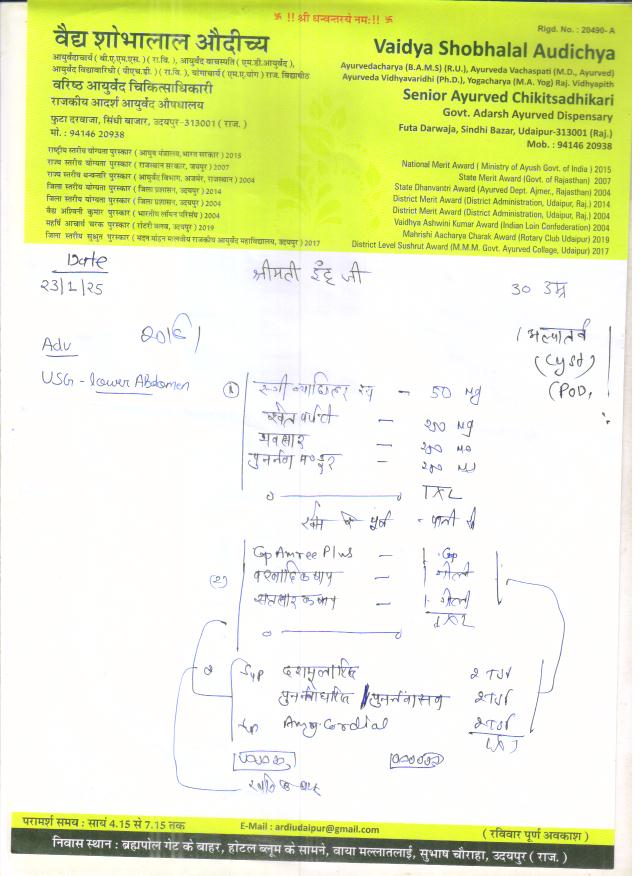 卐 !! श्री धन्वन्तरये नमः!! 卐
Rigd. No. : 20490- A
वैद्य शोभालाल औदीच्य
आयुर्वेदाचार्य ( बी.ए.एम.एस. ) ( रा.वि. ), आयुर्वेद वाचस्पति ( एम.डी.आयुर्वेद ),
आयुर्वेद विद्यावारिधी ( पीएच.डी. ) ( रा.वि. ), योगाचार्य ( एम.ए.योग ) राज. विद्यापीठ
वरिष्ठ आयुर्वेद चिकित्साधिकारी
राजकीय आदर्श आयुर्वेद औषधालय
फुटा दरवाजा, सिंधी बाजार, उदयपुर-313001 ( राज. )
मो. : 94146 20938
राष्ट्रीय स्तरीय योग्यता पुरस्कार ( आयुष मंत्रालय, भारत सरकार ) 2015
राज्य स्तरीय योग्यता पुरस्कार ( राजस्थान सरकार, जयपुर ) 2007
राज्य स्तरीय धन्वन्तरि पुरस्कार ( आयुर्वेद विभाग, अजमेर, राजस्थान ) 2004
जिला स्तरीय योग्यता पुरस्कार ( जिला प्रशासन, उदयपुर ) 2014
जिला स्तरीय योग्यता पुरस्कार ( जिला प्रशासन, उदयपुर ) 2004
वैद्य अश्विनी कुमार पुरस्कार ( भारतीय लॉयन परिसंघ ) 2004
महर्षि आचार्य चरक पुरस्कार ( रोटरी क्लब, उदयपुर ) 2019
जिला स्तरीय सुश्रुत पुरस्कार ( मदन मोहन मालवीय राजकीय आयुर्वेद महाविद्यालय, उदयपुर ) 2017
Vaidya Shobhalal Audichya
Ayurvedacharya (B.A.M.S) (R.U.), Ayurveda Vachaspati (M.D., Ayurved)
Ayurveda Vidhyavaridhi (Ph.D.), Yogacharya (M.A. Yog) Raj. Vidhyapith
Senior Ayurved Chikitsadhikari
Govt. Adarsh Ayurved Dispensary
Futa Darwaja, Sindhi Bazar, Udaipur-313001 (Raj.)
Mob. : 94146 20938
National Merit Award ( Ministry of Ayush Govt. of India ) 2015
State Merit Award (Govt. of Rajasthan) 2007
State Dhanvantri Award (Ayurved Dept. Ajmer., Rajasthan) 2004
District Merit Award (District Administration, Udaipur, Raj.) 2014
District Merit Award (District Administration, Udaipur, Raj.) 2004
Vaidhya Ashwini Kumar Award (Indian Loin Confederation) 2004
Mahrishi Aacharya Charak Award (Rotary Club Udaipur) 2019
District Level Sushrut Award (M.M.M. Govt. Ayurved Collage, Udaipur) 2017
Date
23/1/25
श्रीमती इंदू जी
30
Adv
USG - lower Abdomen
(Cyst)
(POD,
(1)
50 mg
श्वेत पर्पटी - 200 mg
यवक्षार - 200 mg
पुनर्नवा मण्डूर - 200 mg
1X2
पानी से
Cap Amree Plus - 1 Cap
(2)
1 गोली
1 गोली
1X2
Syp दशमूलारिष्ट
Syp Amy Cordial
परामर्श समय : सायं 4.15 से 7.15 तक
E-Mail : ardiudaipur@gmail.com
( रविवार पूर्ण अवकाश )
निवास स्थान : ब्रह्मपोल गेट के बाहर, होटल ब्लूम के सामने, वाया मल्लातलाई, सुभाष चौराहा, उदयपुर ( राज. )